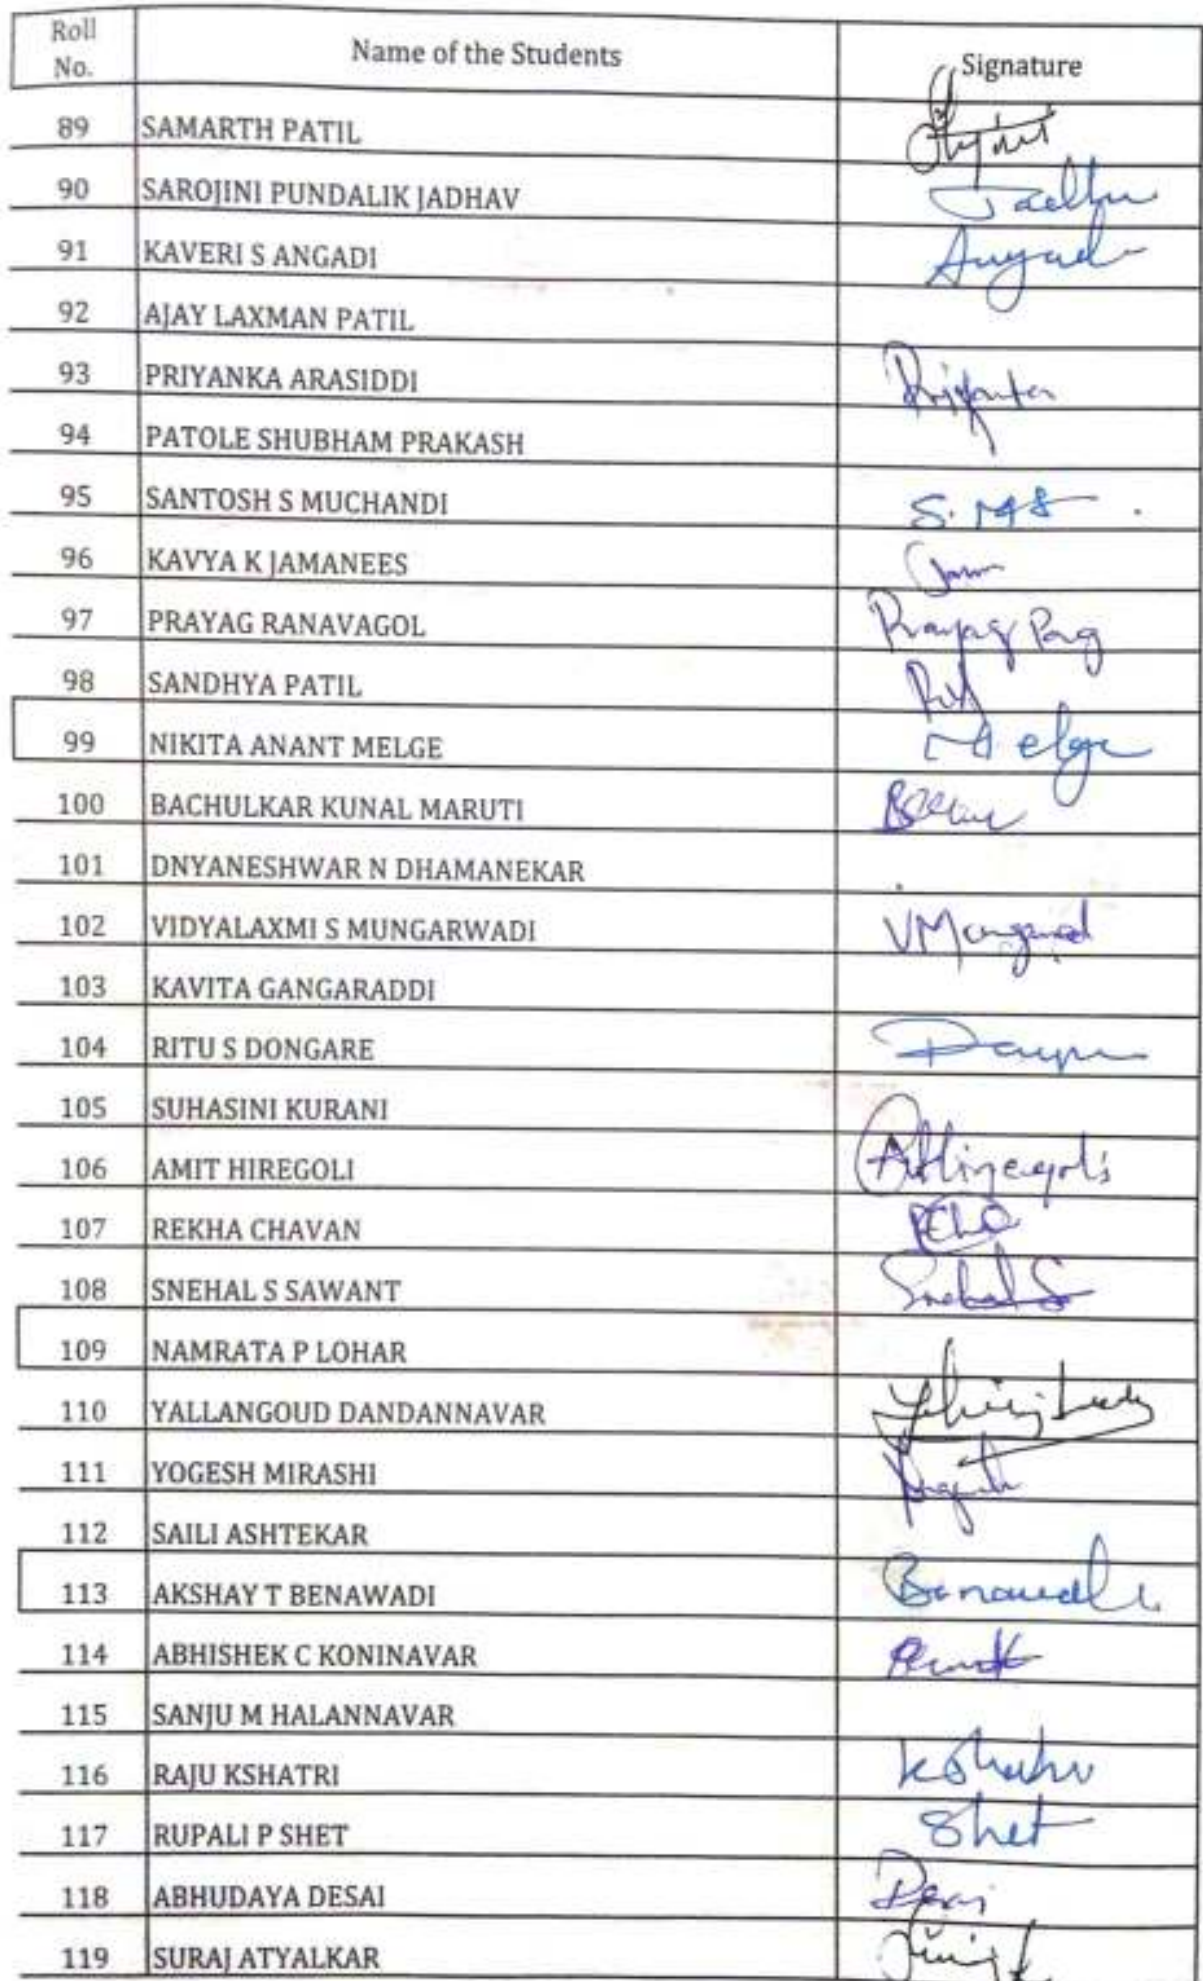 Roll No. Name of the Students Signature
89 SAMARTH PATIL
90 SAROJINI PUNDALIK JADHAV
91 KAVERI S ANGADI Angad
92 AJAY LAXMAN PATIL
93 PRIYANKA ARASIDDI
94 PATOLE SHUBHAM PRAKASH
95 SANTOSH S MUCHANDI
96 KAVYA K JAMANEES
97 PRAYAG RANAVAGOL Prayag
98 SANDHYA PATIL
99 NIKITA ANANT MELGE Melge
100 BACHULKAR KUNAL MARUTI
101 DNYANESHWAR N DHAMANEKAR
102 VIDYALAXMI S MUNGARWADI
103 KAVITA GANGARADDI
104 RITU S DONGARE
105 SUHASINI KURANI
106 AMIT HIREGOLI
107 REKHA CHAVAN
108 SNEHAL S SAWANT Snehal S
109 NAMRATA P LOHAR
110 YALLANGOUD DANDANNAVAR
111 YOGESH MIRASHI
112 SAILI ASHTEKAR
113 AKSHAY T BENAWADI
114 ABHISHEK C KONINAVAR
115 SANJU M HALANNAVAR
116 RAJU KSHATRI
117 RUPALI P SHET Shet
118 ABHUDAYA DESAI Desai
119 SURAJ ATYALKAR